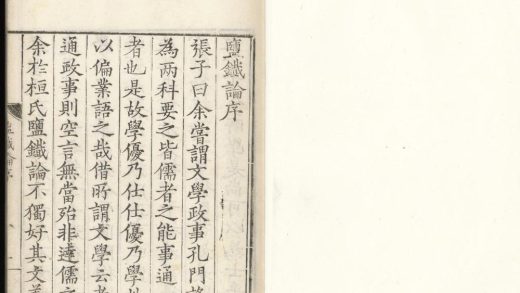 鹽鐵論序
張子曰余嘗謂文學政事孔門
為两科要之皆儒者之能事通
者也是故學優乃仕仕優乃學
以偏業語之哉借所謂文學云者
通政事則空言無當殆非達儒之
余扵桓氏鹽鐵論不獨好其文
鹽鐵論序